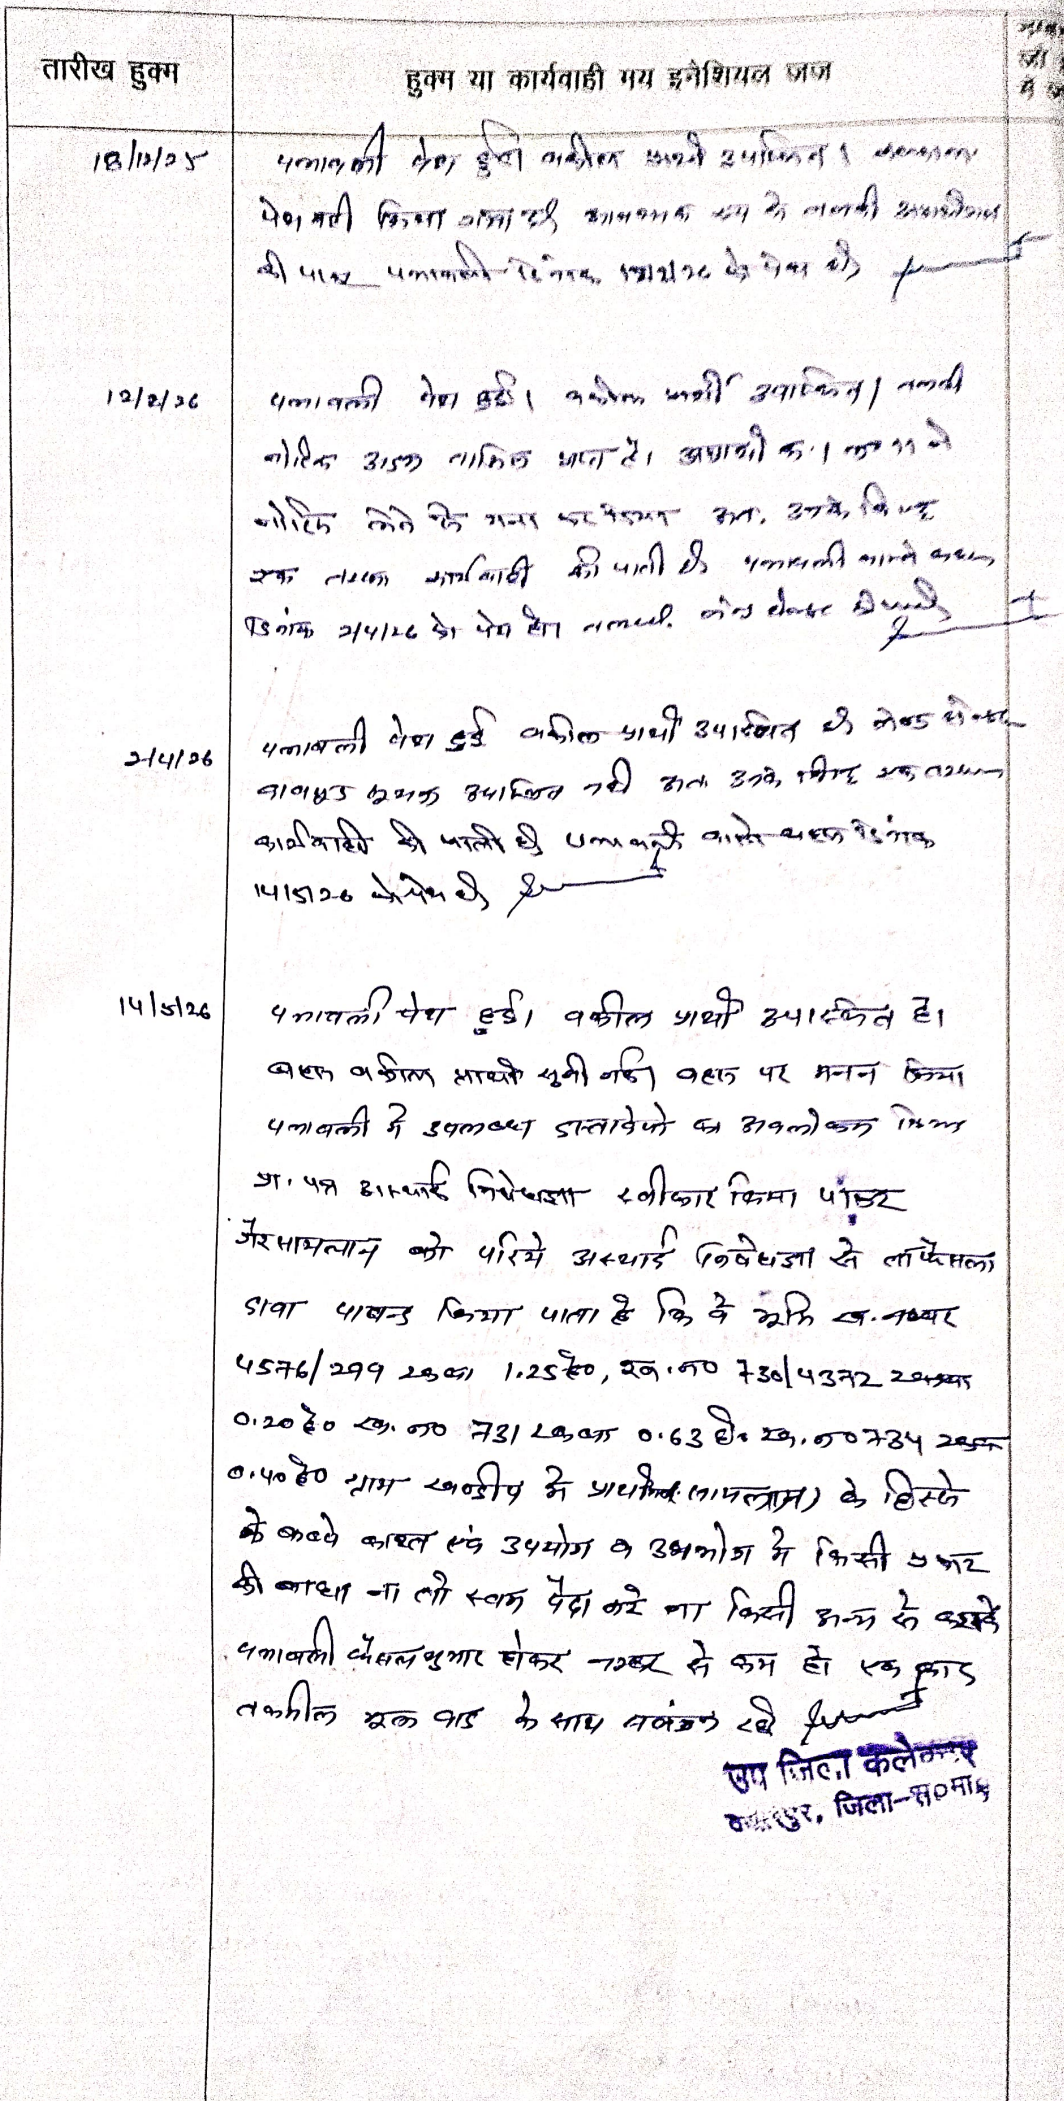 तारीख हुक्म
हुक्म या कार्यवाही मय इनैशियल जज
18/12/25
पत्रावली पेश हुई। वकील प्रार्थी उपस्थित।
पेश नही किया आवश्यक रूप से तलबी
की जाकर पत्रावली दिनांक 12/2/26 को पेश हो
12/2/26
पत्रावली पेश हुई। वकील प्रार्थी उपस्थित। तलबी
नोटिस बाद तामिल प्राप्त है। अप्रार्थी क्र. 1 ने
नोटिस लेने से मना कर दिया अतः उनके विरूद्ध
एक तरफा कार्यवाही की जाती है पत्रावली वास्ते बहस
दिनांक 2/4/26 को पेश हो।
2/4/26
पत्रावली पेश हुई वकील प्रार्थी उपस्थित है
बावजूद उपस्थित नही अतः उनके विरूद्ध एक तरफा
कार्यवाही की जाती है पत्रावली वास्ते बहस दिनांक
14/5/26 को पेश हो
14/5/26
पत्रावली पेश हुई। वकील प्रार्थी उपस्थित है।
बहस वकील प्रार्थी सुनी गई। बहस पर मनन किया
पत्रावली मे उपलब्ध दस्तावेजो का अवलोकन किया
प्रा. पत्र अस्थाई निषेधाज्ञा स्वीकार किया जाकर
गैरसायलान को जरिये अस्थाई निषेधाज्ञा से ताफैसला
दावा पाबन्द किया जाता है कि वे भूमि ख. नम्बर
4576/299 रकबा 1.25 है0, ख.न0 730/4372 रकबा
0.20 है0 ख. न0 731 रकबा 0.63 है0 ख. न0 734 रकबा
0.40 है0 ग्राम खण्डीप मे प्रार्थी के हिस्से
के कब्जे काश्त एवं उपयोग व उपभोग मे किसी प्रकार
की बाधा ना तो स्वयं पैदा करे ना किसी अन्य से करावे
पत्रावली फैसल शुमार होकर नम्बर से कम हो
तकमील मूल वाद के साथ संलग्न रहे
उप जिला कलेक्टर
जिला-स0मा0